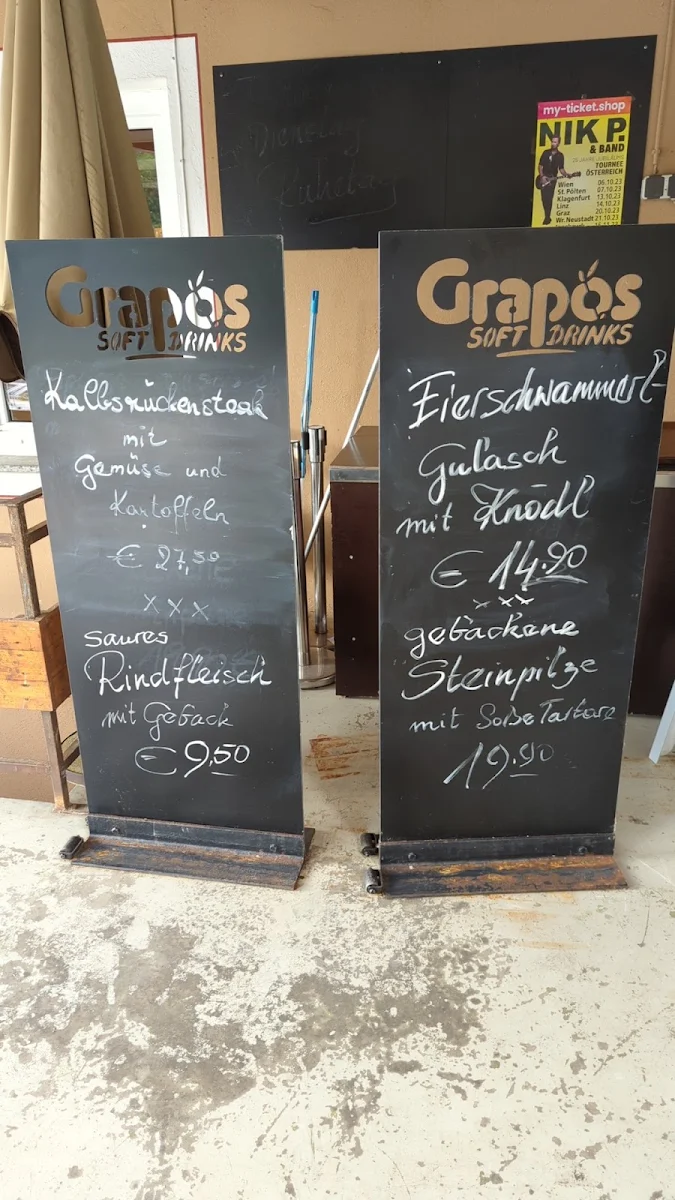 Dienstag
Ruhetag
my-ticket.shop
NIK P.
& BAND
TOURNEE
ÖSTERREICH
Wien 06.10.23
St. Pölten 07.10.23
Klagenfurt 13.10.23
Linz 14.10.23
Graz 20.10.23
Wr. Neustadt 21.10.23
Grapos
SOFT DRINKS
Kalbsrückensteak
mit
Gemüse und
Kartoffeln
€ 27,50
x x x
saures
Rindfleisch
mit Gebäck
€ 9,50
Grapos
SOFT DRINKS
Eierschwammerl-
Gulasch
mit Knödl
€ 14.90
xxx
gebackene
Steinpilze
mit Soße Tartare
19.90